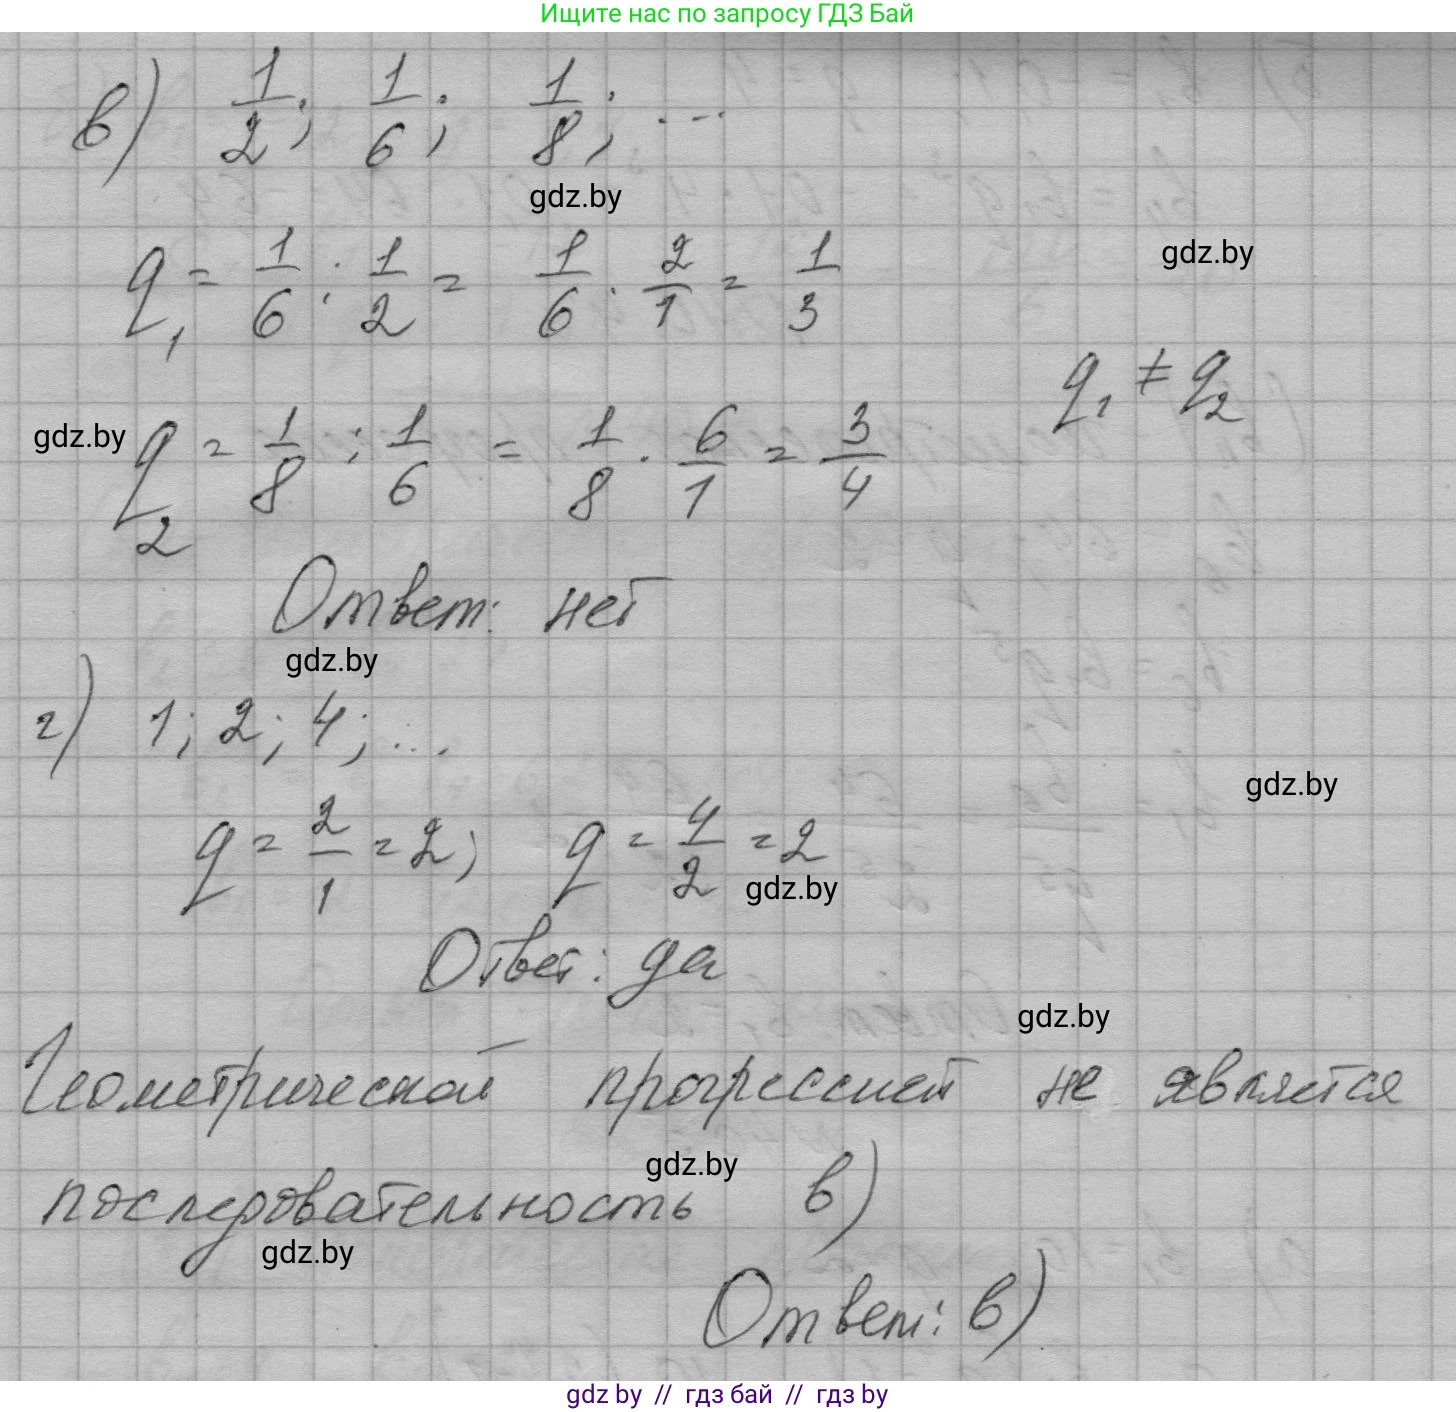 Ищите нас по запросу ГДЗ Бай
в) 1/2; 1/6; 1/8; ...
gdz.by
gdz.by
q₁ = 1/6 : 1/2 = 1/6 · 2/1 = 1/3
q₁ ≠ q₂
gdz.by
q₂ = 1/8 : 1/6 = 1/8 · 6/1 = 3/4
Ответ: нет
gdz.by
г) 1; 2; 4; ...
gdz.by
q = 2/1 = 2; q = 4/2 = 2
gdz.by
Ответ: да
gdz.by
Геометрической прогрессией не является
gdz.by
последовательность в)
gdz.by
Ответ: в)
gdz by // гдз бай // гдз by